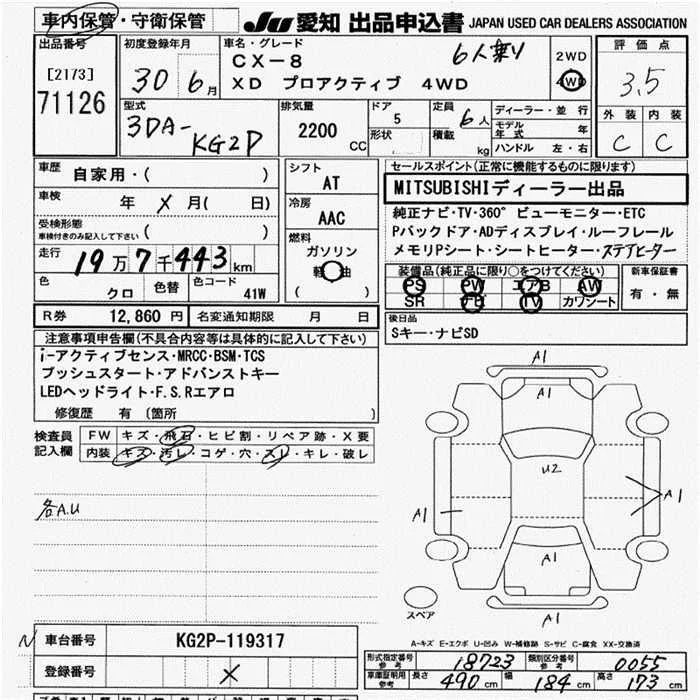 車内保管・守衛保管
JU 愛知 出品申込書 JAPAN USED CAR DEALERS ASSOCIATION
出品番号
[2173]
71126
初度登録年月
30年 6月
車名・グレード
6人乗り
CX-8
XD プロアクティブ 4WD
2WD
4WD
評価点
3.5
外装 内装
C C
型式
3DA-KG2P
排気量
2200 CC
ドア
5
形状
定員
6人
積載 kg
ディーラー・並行
モデル年式 年
ハンドル 左・右
車歴
自家用・( )
車検
年 X 月( 日)
受検形態
車検付きのみ記入して下さい ( )
走行
19万7千443km
色
クロ
色替
色コード
41W
シフト
AT
冷房
AAC
燃料
ガソリン
軽油
( )
セールスポイント(正常に機能するものに限ります)
MITSUBISHIディーラー出品
純正ナビ・TV・360°ビューモニター・ETC
Pバックドア・ADディスプレイ・ルーフレール
メモリPシート・シートヒーター・ステアヒーター
装備品(純正品に限り○をつけてください)
PS PW エアB AW
SR ナビ TV カワシート
新車保証書
有・無
R券 12,860円 名変通知期限 月 日
後日品
Sキー・ナビSD
注意事項申告欄(不具合内容は具体的に記入して下さい)
i-アクティブセンス・MRCC・BSM・TCS
プッシュスタート・アドバンストキー
LEDヘッドライト・F.S.Rエアロ
修復歴 有 (箇所 )
検査員記入欄
FW キズ・飛石・ヒビ割・リペア跡・X要
内装 キズ・汚レ・コゲ・穴・スレ・キレ・破レ
各A.U
A1
A1
U2
A1
A1
A1
A1
スペア
A-キズ E-エクボ U-凹み W-補修跡 S-サビ C-腐食 XX-交換済
車台番号 KG2P-119317
登録番号 X
形式指定番号 参考 18723 類別区分番号 参考 0055
車庫証明用 参考 長さ 490cm 幅 184cm 高さ 173cm